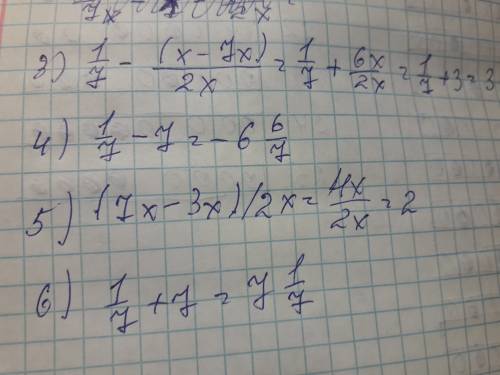 3) 1/7 - (x - 7x)/2x = 1/7 + 6x/2x = 1/7 + 3 = 3
4) 1/7 - 7 = - 6 6/7
5) (7x - 3x)/2x = 4x/2x = 2
6) 1/7 + 7 = 7 1/7